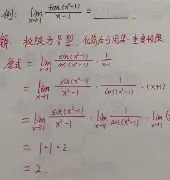 例: lim_{x→1} tan(x²-1)/(x-1) = ____.
解 极限为 0/0 型, 化简后可用第一重要极限
原式 = lim_{x→1} sin(x²-1)/cos(x²-1) · 1/(x-1)
= lim_{x→1} sin(x²-1)/(x²-1) · 1/cos(x²-1) · (x+1)
= lim_{x→1} sin(x²-1)/(x²-1) · lim_{x→1} 1/cos(x²-1) · lim_{x→1} (
= 1 · 1 · 2
= 2.